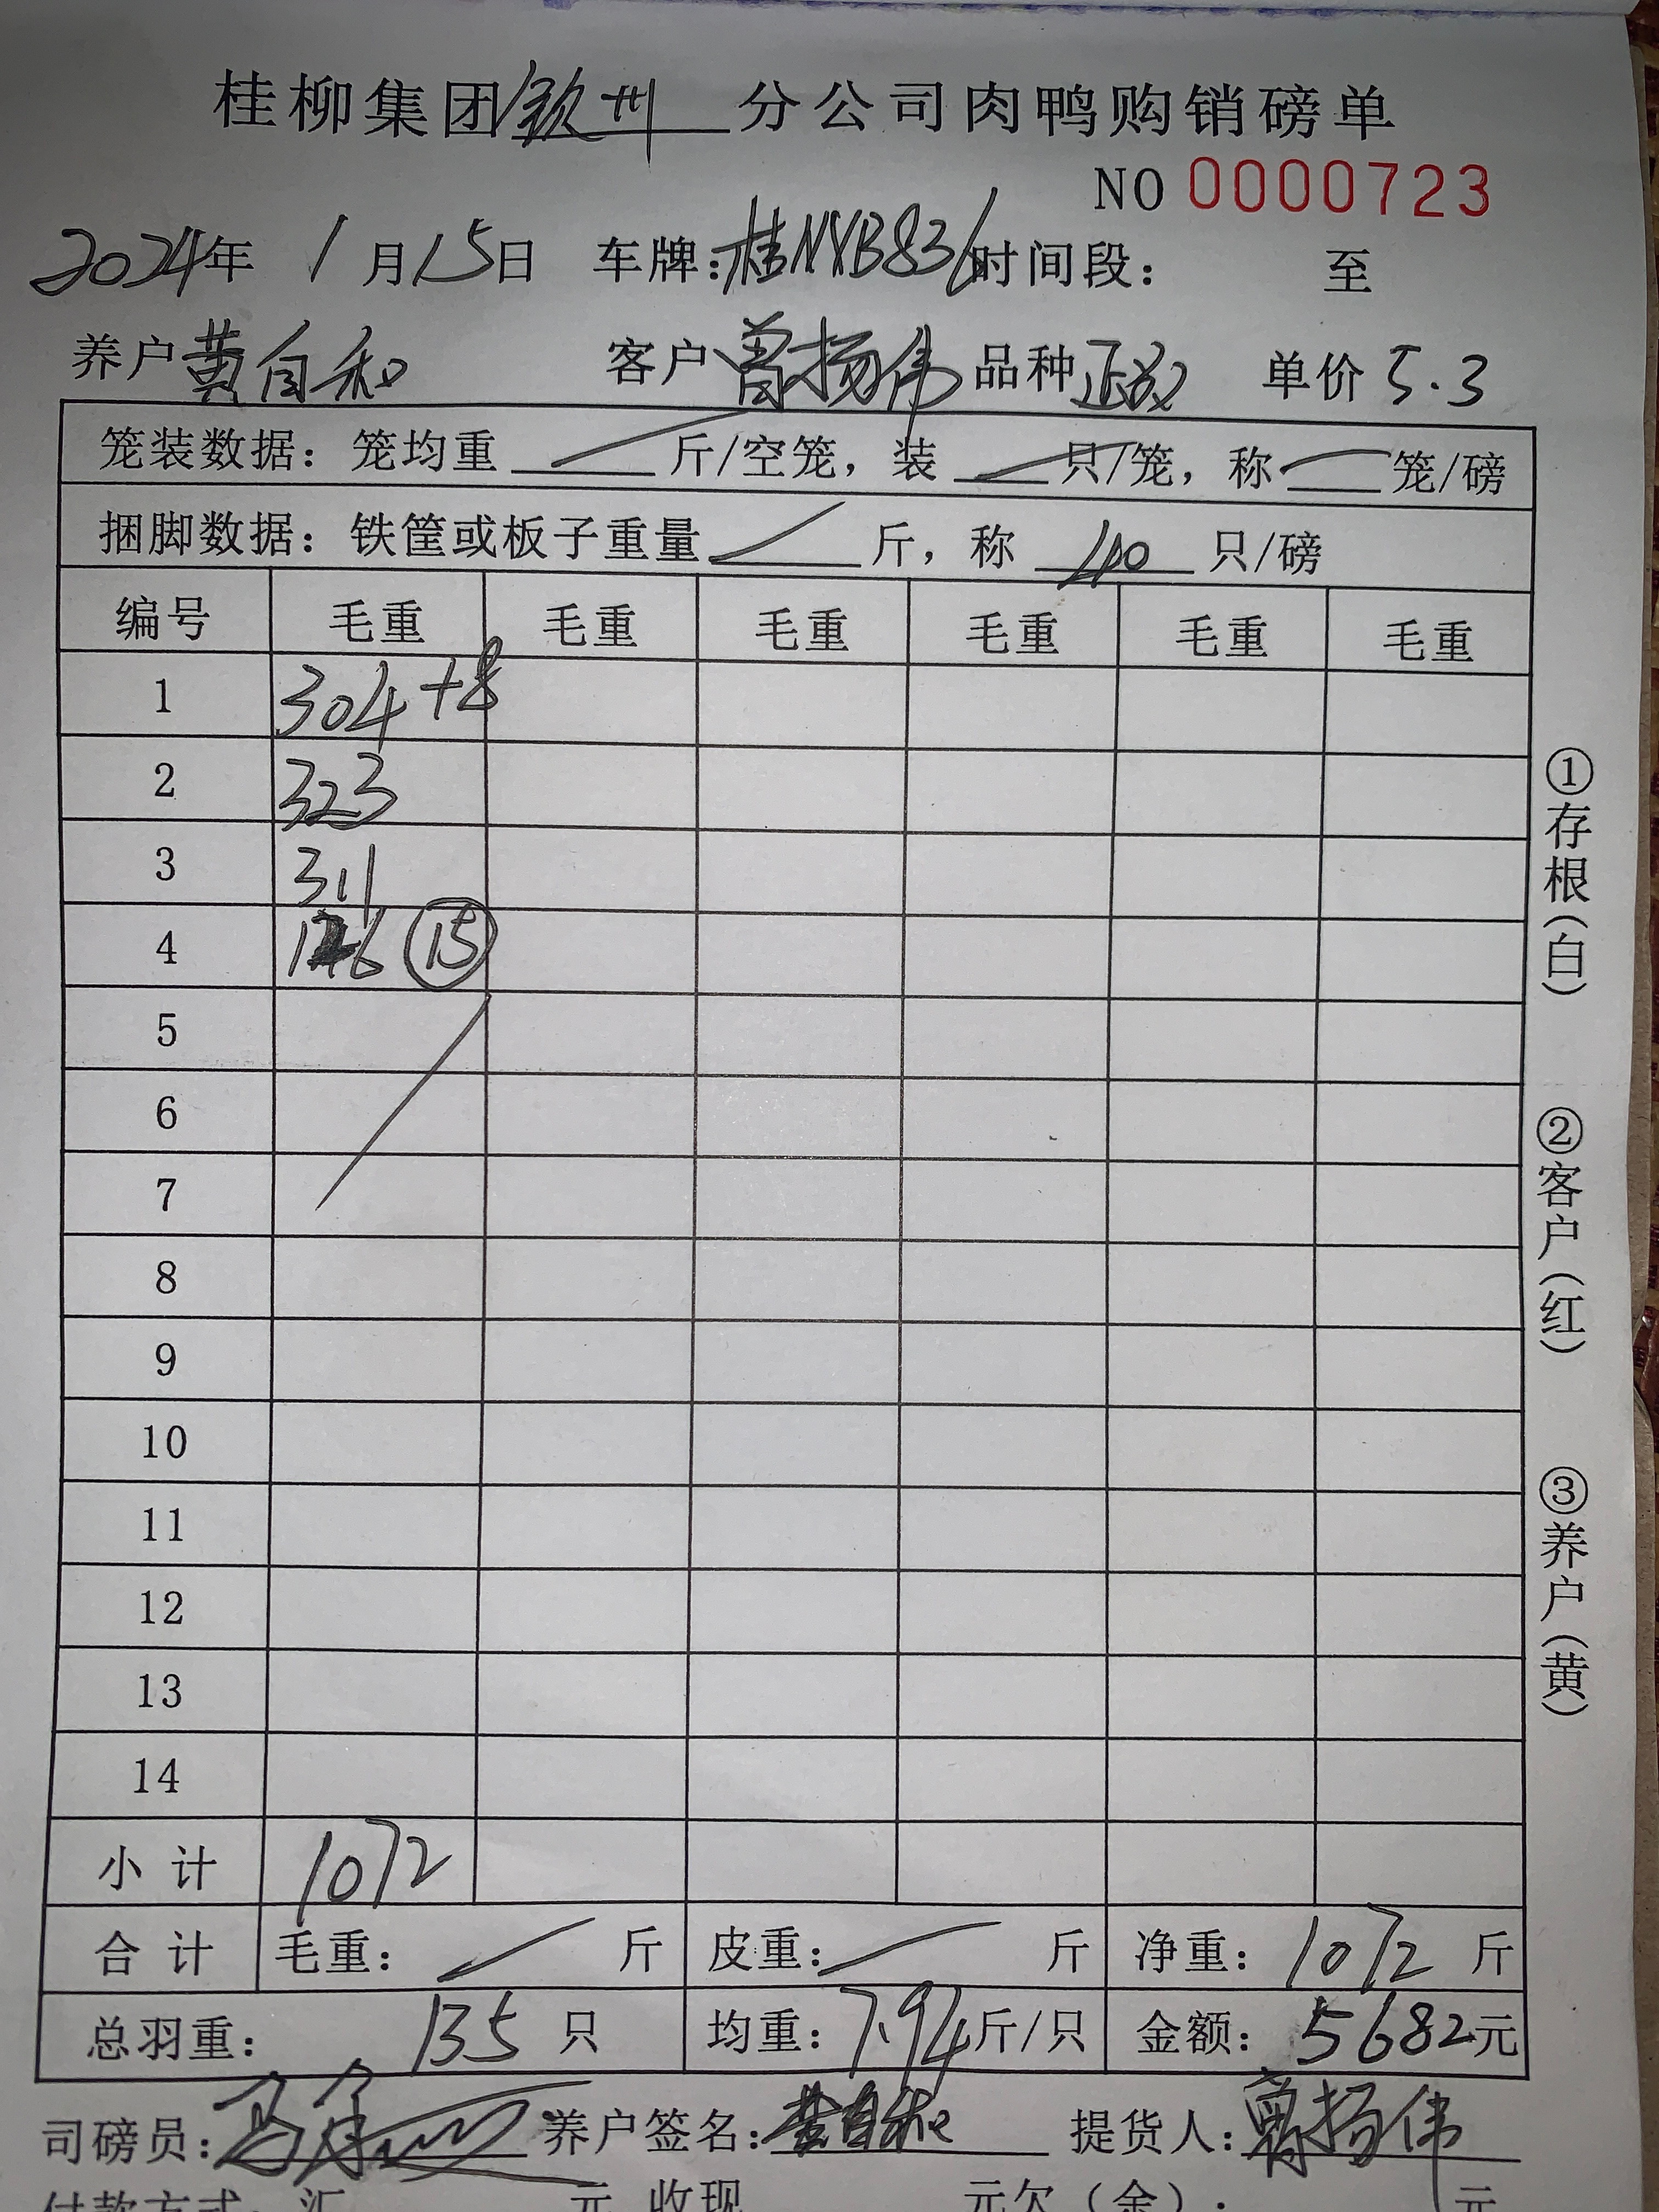 桂柳集团钦州分公司肉鸭购销磅单
NO 0000723
2024年 1月15日 车牌:桂NYB836时间段: 至
养户黄自和 客户曾扬伟 品种正成 单价5.3
笼装数据: 笼均重 斤/空笼, 装 只/笼, 称 笼/磅
捆脚数据: 铁筐或板子重量 斤, 称 40 只/磅
编号 毛重 毛重 毛重 毛重 毛重 毛重
1 304+8
2 323
3 311
4 126 15
5
6
7
8
9
10
11
12
13
14
小计 1072
合计 毛重: 斤 皮重: 斤 净重: 1072 斤
总羽重: 135 只 均重: 7.94斤/只 金额: 5682元
司磅员: 养户签名:黄自和 提货人:曾扬伟
付款方式: 汇 元 收现 元欠(余): 元
①存根(白)
②客户(红)
③养户(黄)